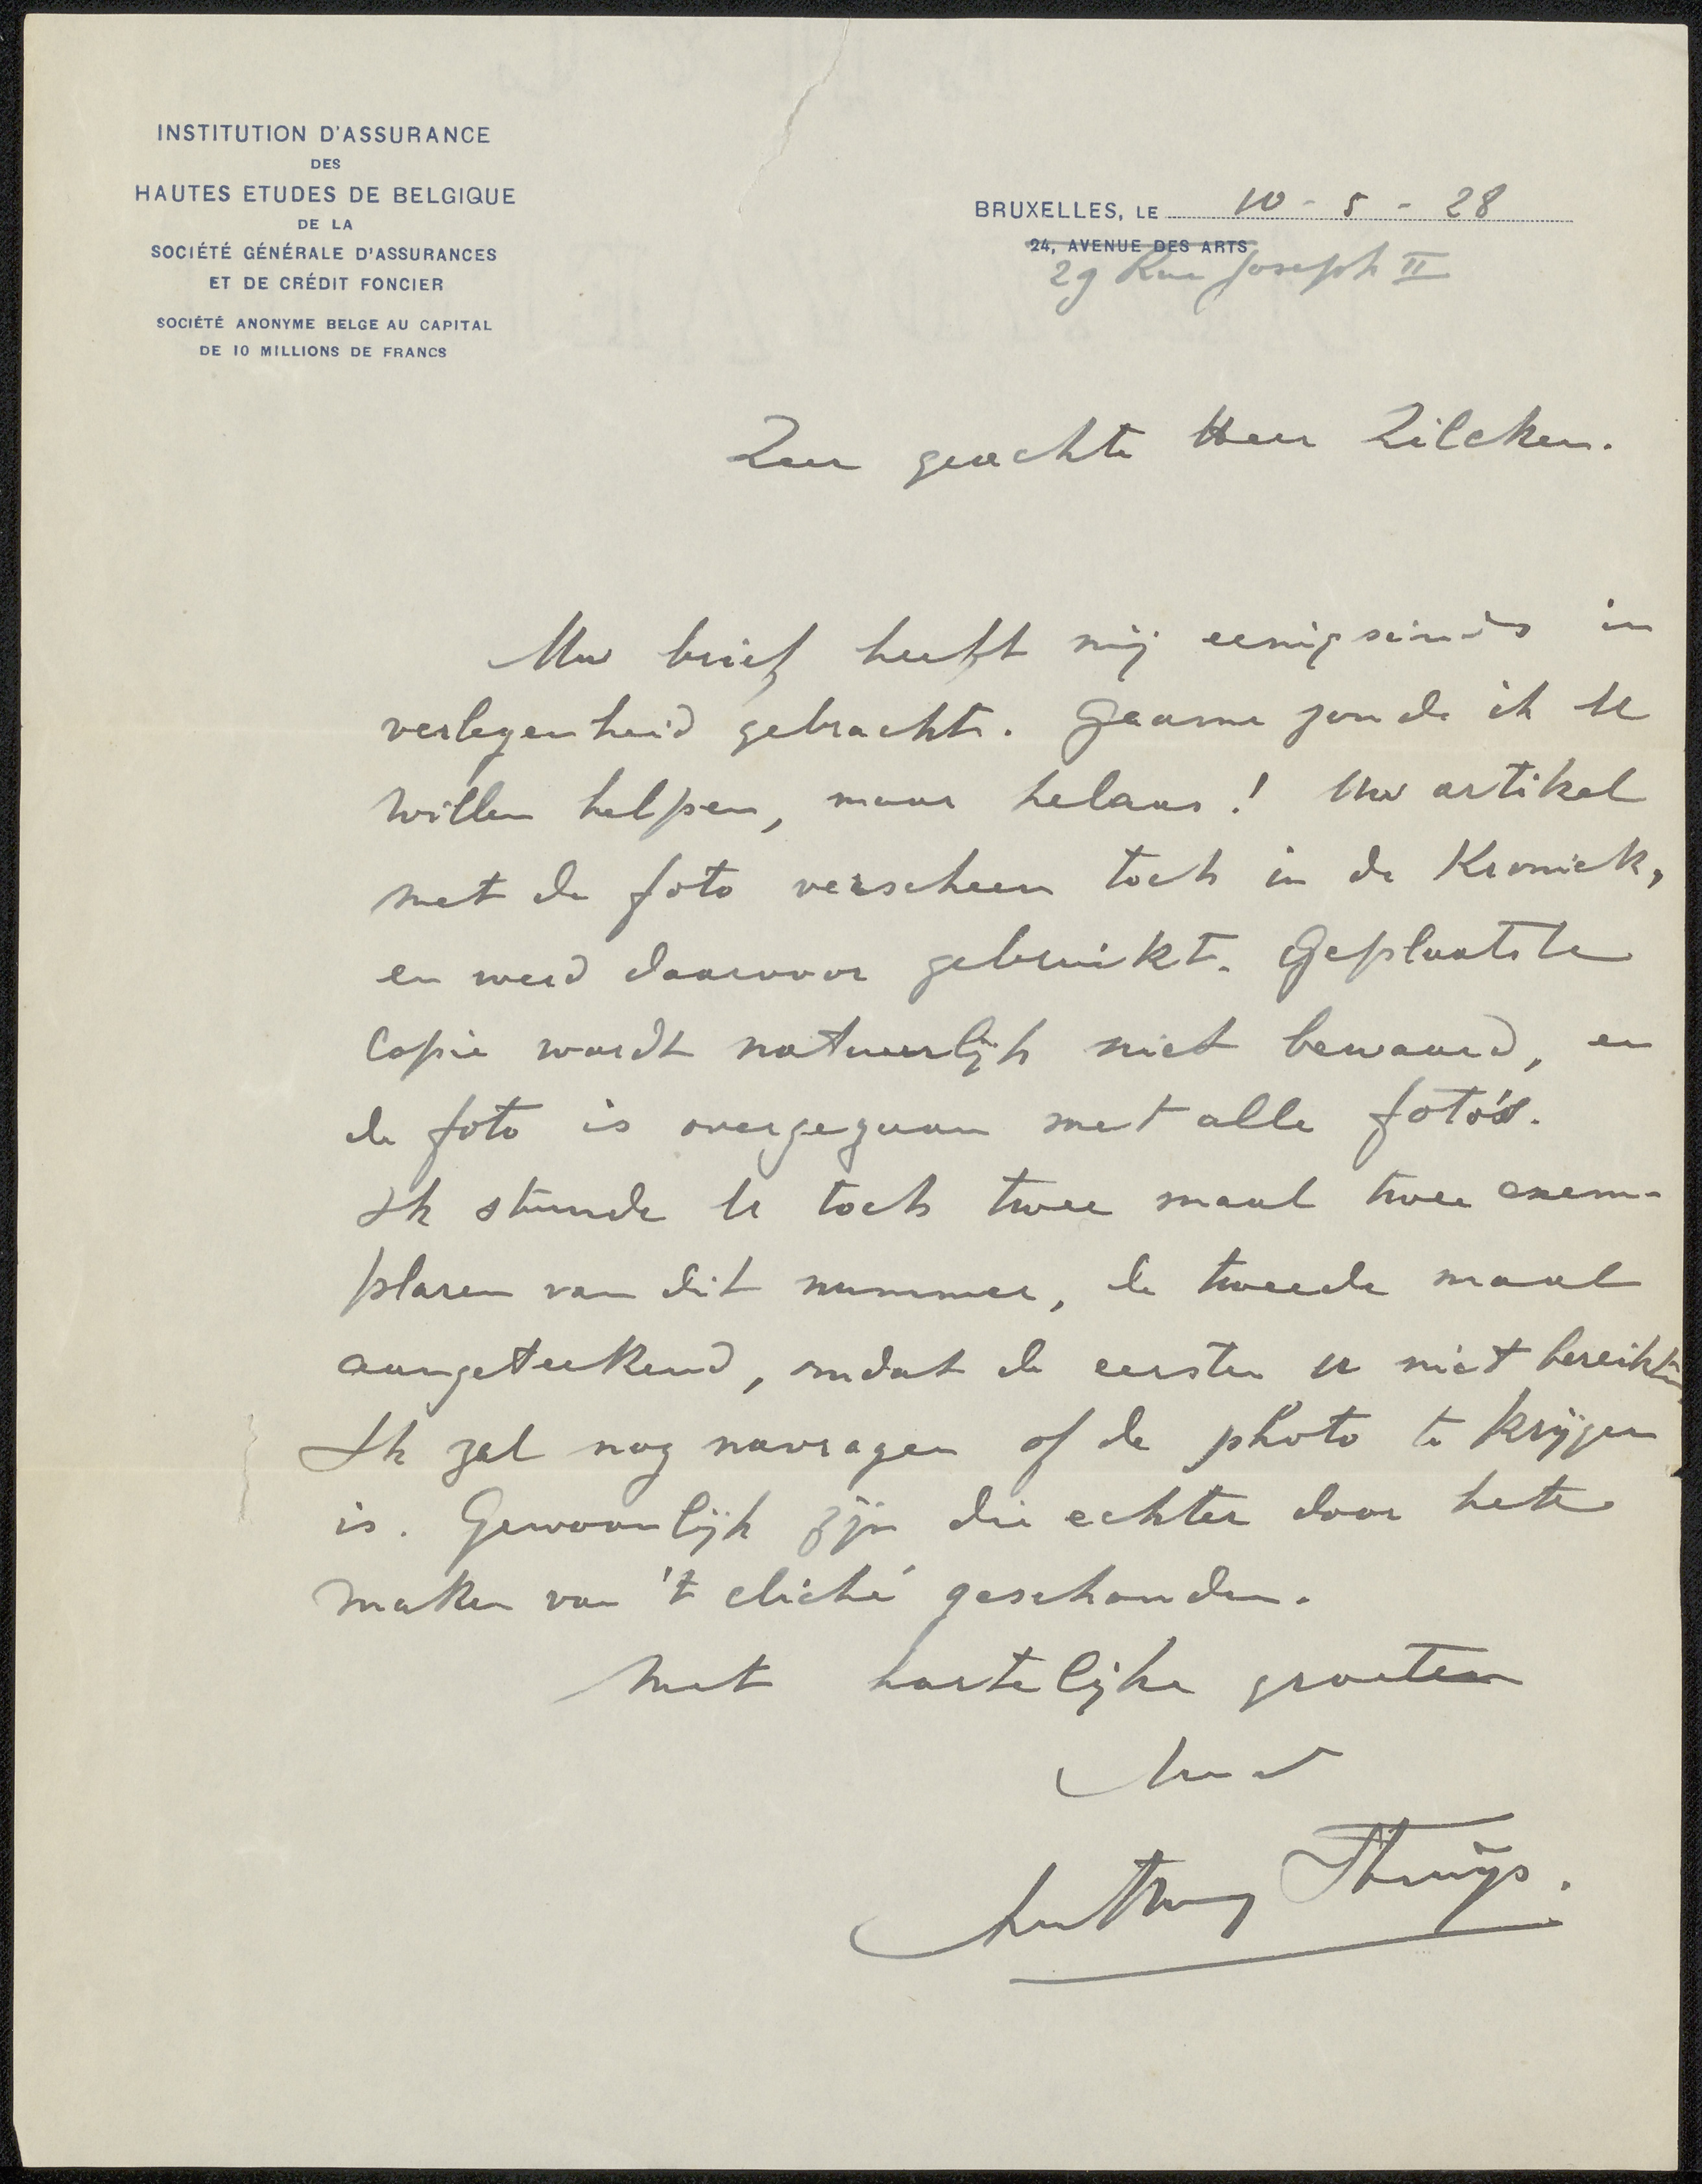 INSTITUTION D'ASSURANCE
DES
HAUTES ETUDES DE BELGIQUE
DE LA
SOCIÉTÉ GÉNÉRALE D'ASSURANCES
ET DE CRÉDIT FONCIER
SOCIÉTÉ ANONYME BELGE AU CAPITAL
DE 10 MILLIONS DE FRANCS
BRUXELLES, LE 10 - 5 - 28
24, AVENUE DES ARTS
29 Rue Joseph II
Zeer geachte Heer Zilcken.
Uw brief heeft mij eenigszinds in
verlegenheid gebracht. Gaarne zoude ik U
willen helpen, maar helaas! Uw artikel
met de foto verscheen toch in de Kroniek,
en werd daarvoor gebruikt. Geplaatste
Copie wordt natuurlijk niet bewaard, en
de foto is overgegaan met alle foto's.
Ik stuurde U toch twee maal twee exem-
plaren van dit nummer, de tweede maal
aangeteekend, omdat de eersten U niet bereikten
Ik zal nog navragen of de photo te krijgen
is. Gewoonlijk zijn die echter door het
maken van 't cliché geschonden.
Met hartelijke groeten
Uw
Anthony Thuijs.